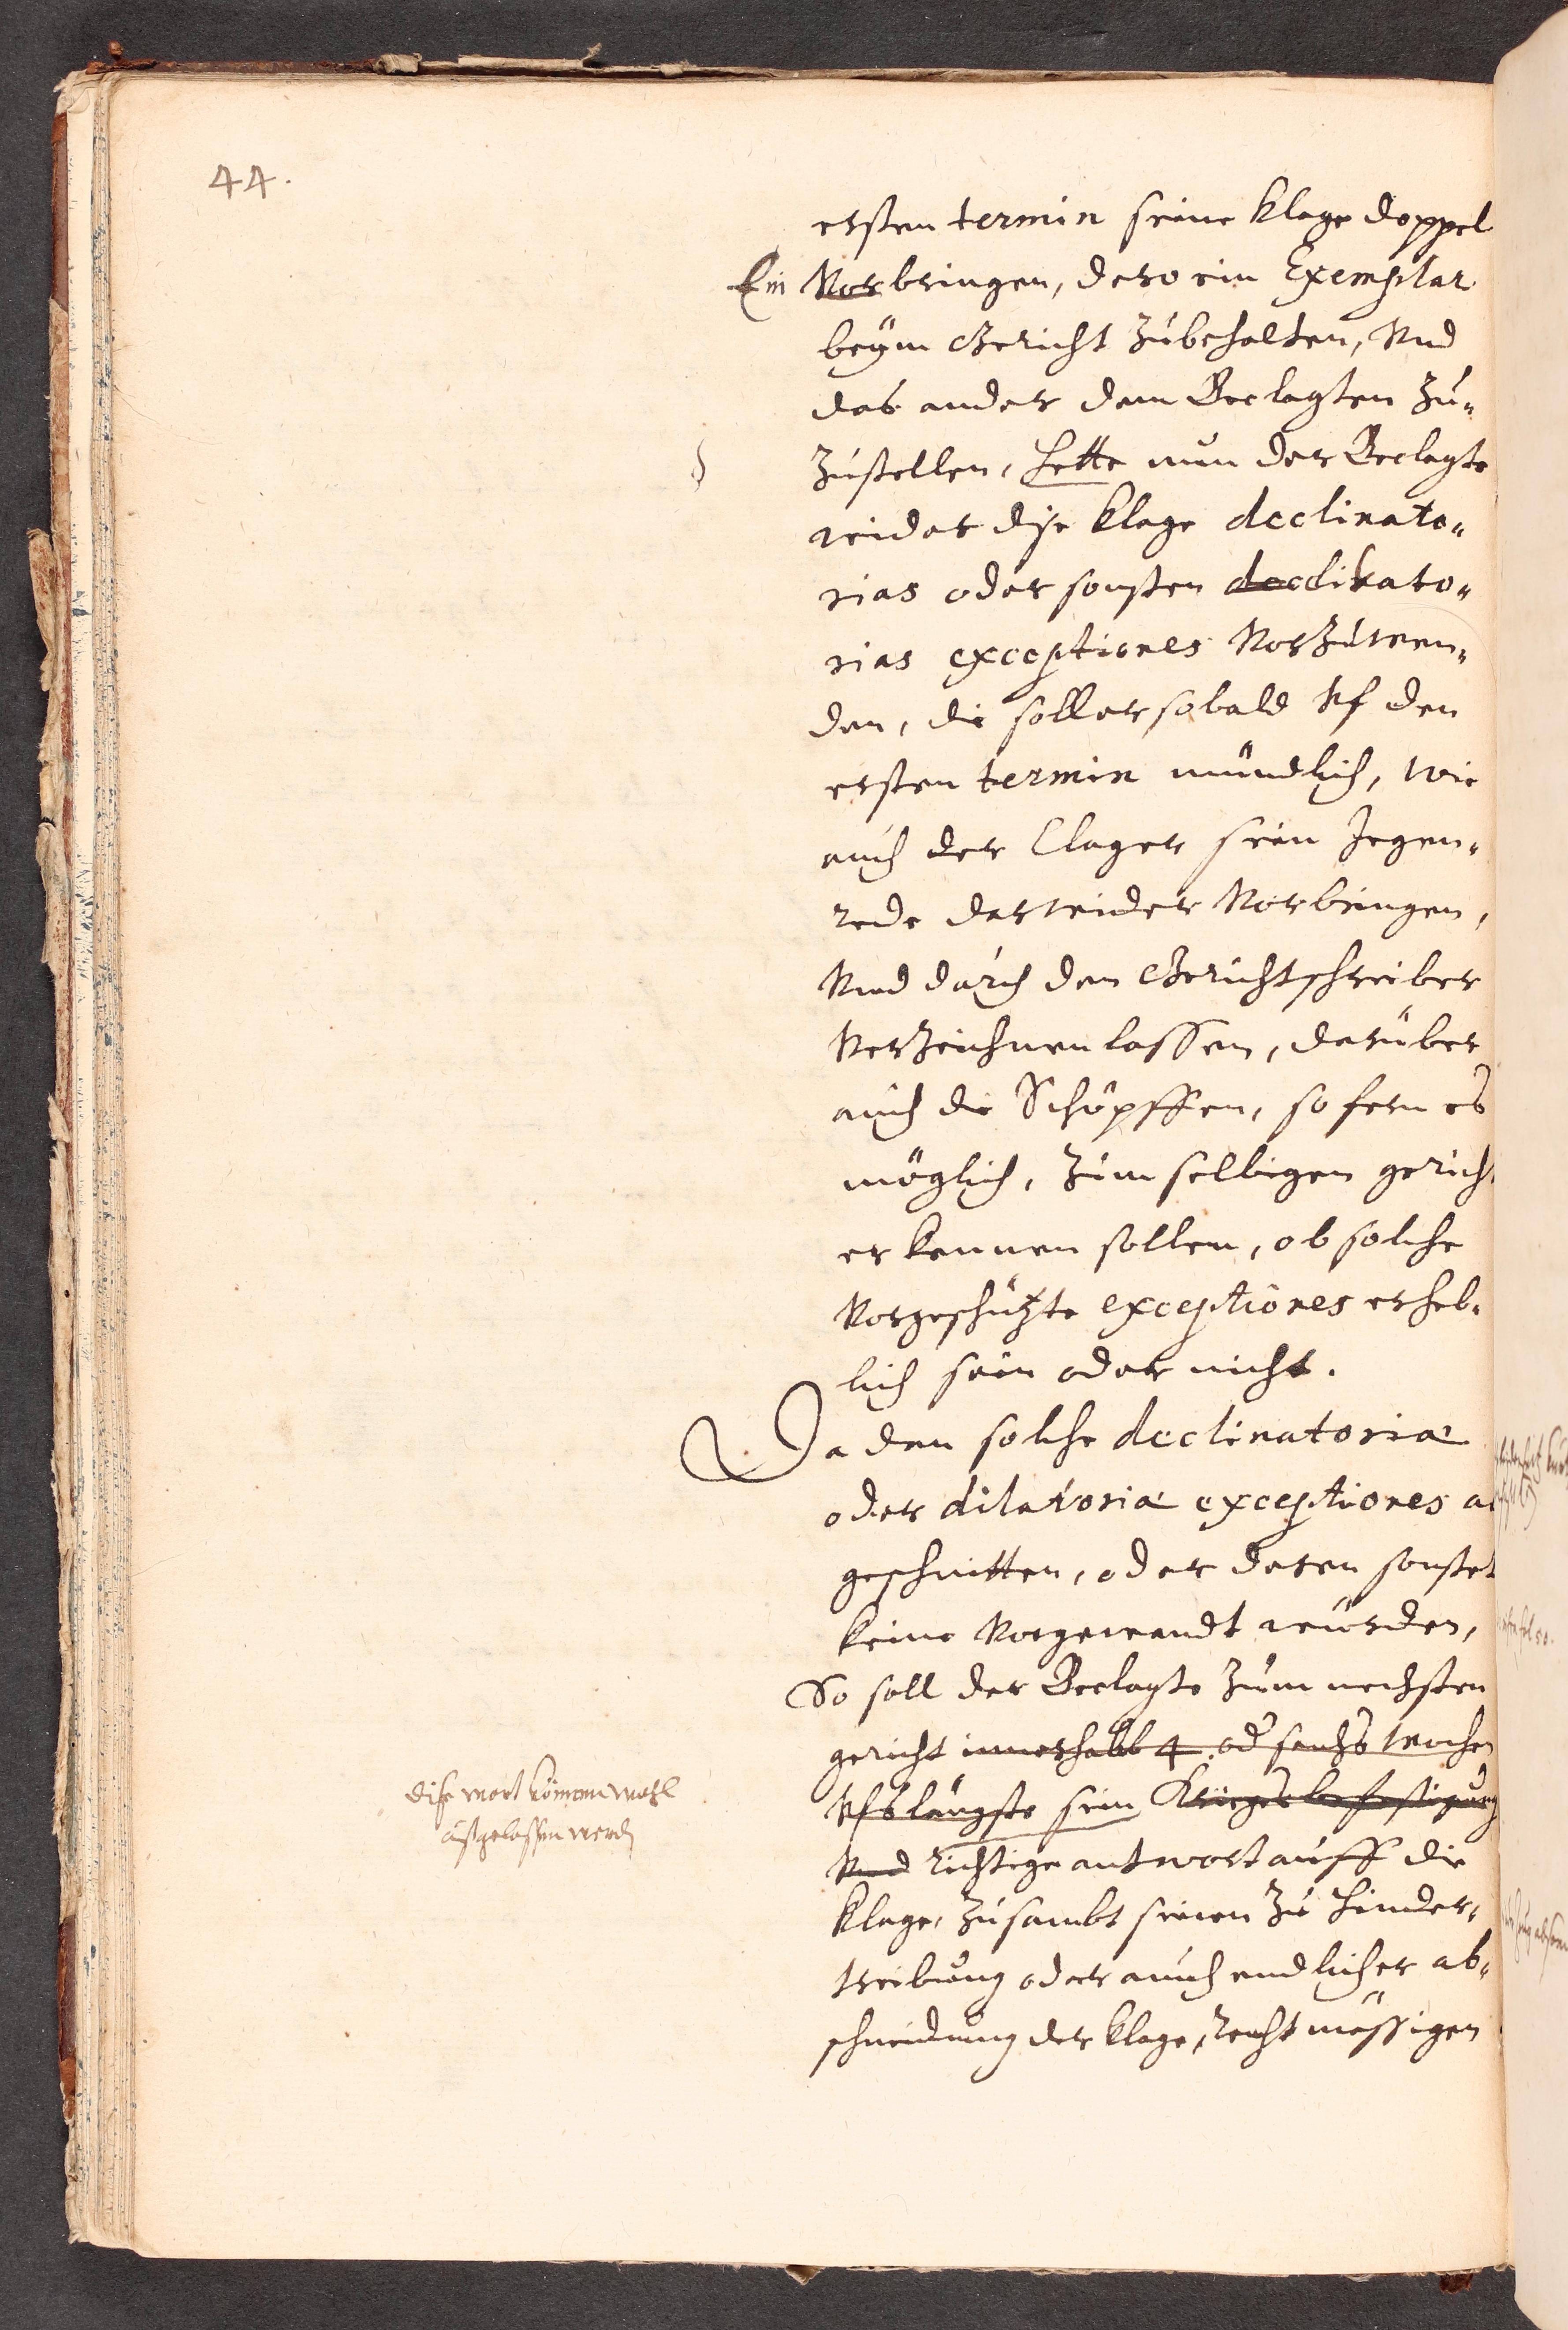 44.
ersten termin seine klage doppel
Ein Vorbringen, dero ein Exemplar
beÿm Gericht Zubehalten, Vnd
das ander dem Beclagten Zu„
Zustellen, Hette nun der Beclagte
wider dise klage declinato„
rias oder sonsten decliḱato„
rias exceptiones Vorzuwen„
den, die soll er sobald Vf den
ersten termin mündlich, wie
auch der Clager sein Jegen„
rede darwider Vorbringen,
Vnd durch den Gerichtschreiber
Verzeichnen lassen, darüber
auch die Schöpffen, so fern es
möglich, Zum selbigen gericht
erkennen sollen, ob solche
Vorgeschützte exceptiones erheb„
lich sein oder nicht.
Da den solche declinatoriæ
oder dilatoriæ exceptiones a
geschnitten, oder deren sonsten
keine Vorgewandt würden,
So soll der Beclagte Zum nechsten
gericht innerhalb 4. od sechs wochen
Vfs längste sein Kriegs befestigung
Vnd richtige antwort auff die
klage, Zusambt seinen Zu hinder„
treibung oder auch endlicher ab„
schneidung der klage, Recht mässigen
dise wort können wohl
außgelassen werdn